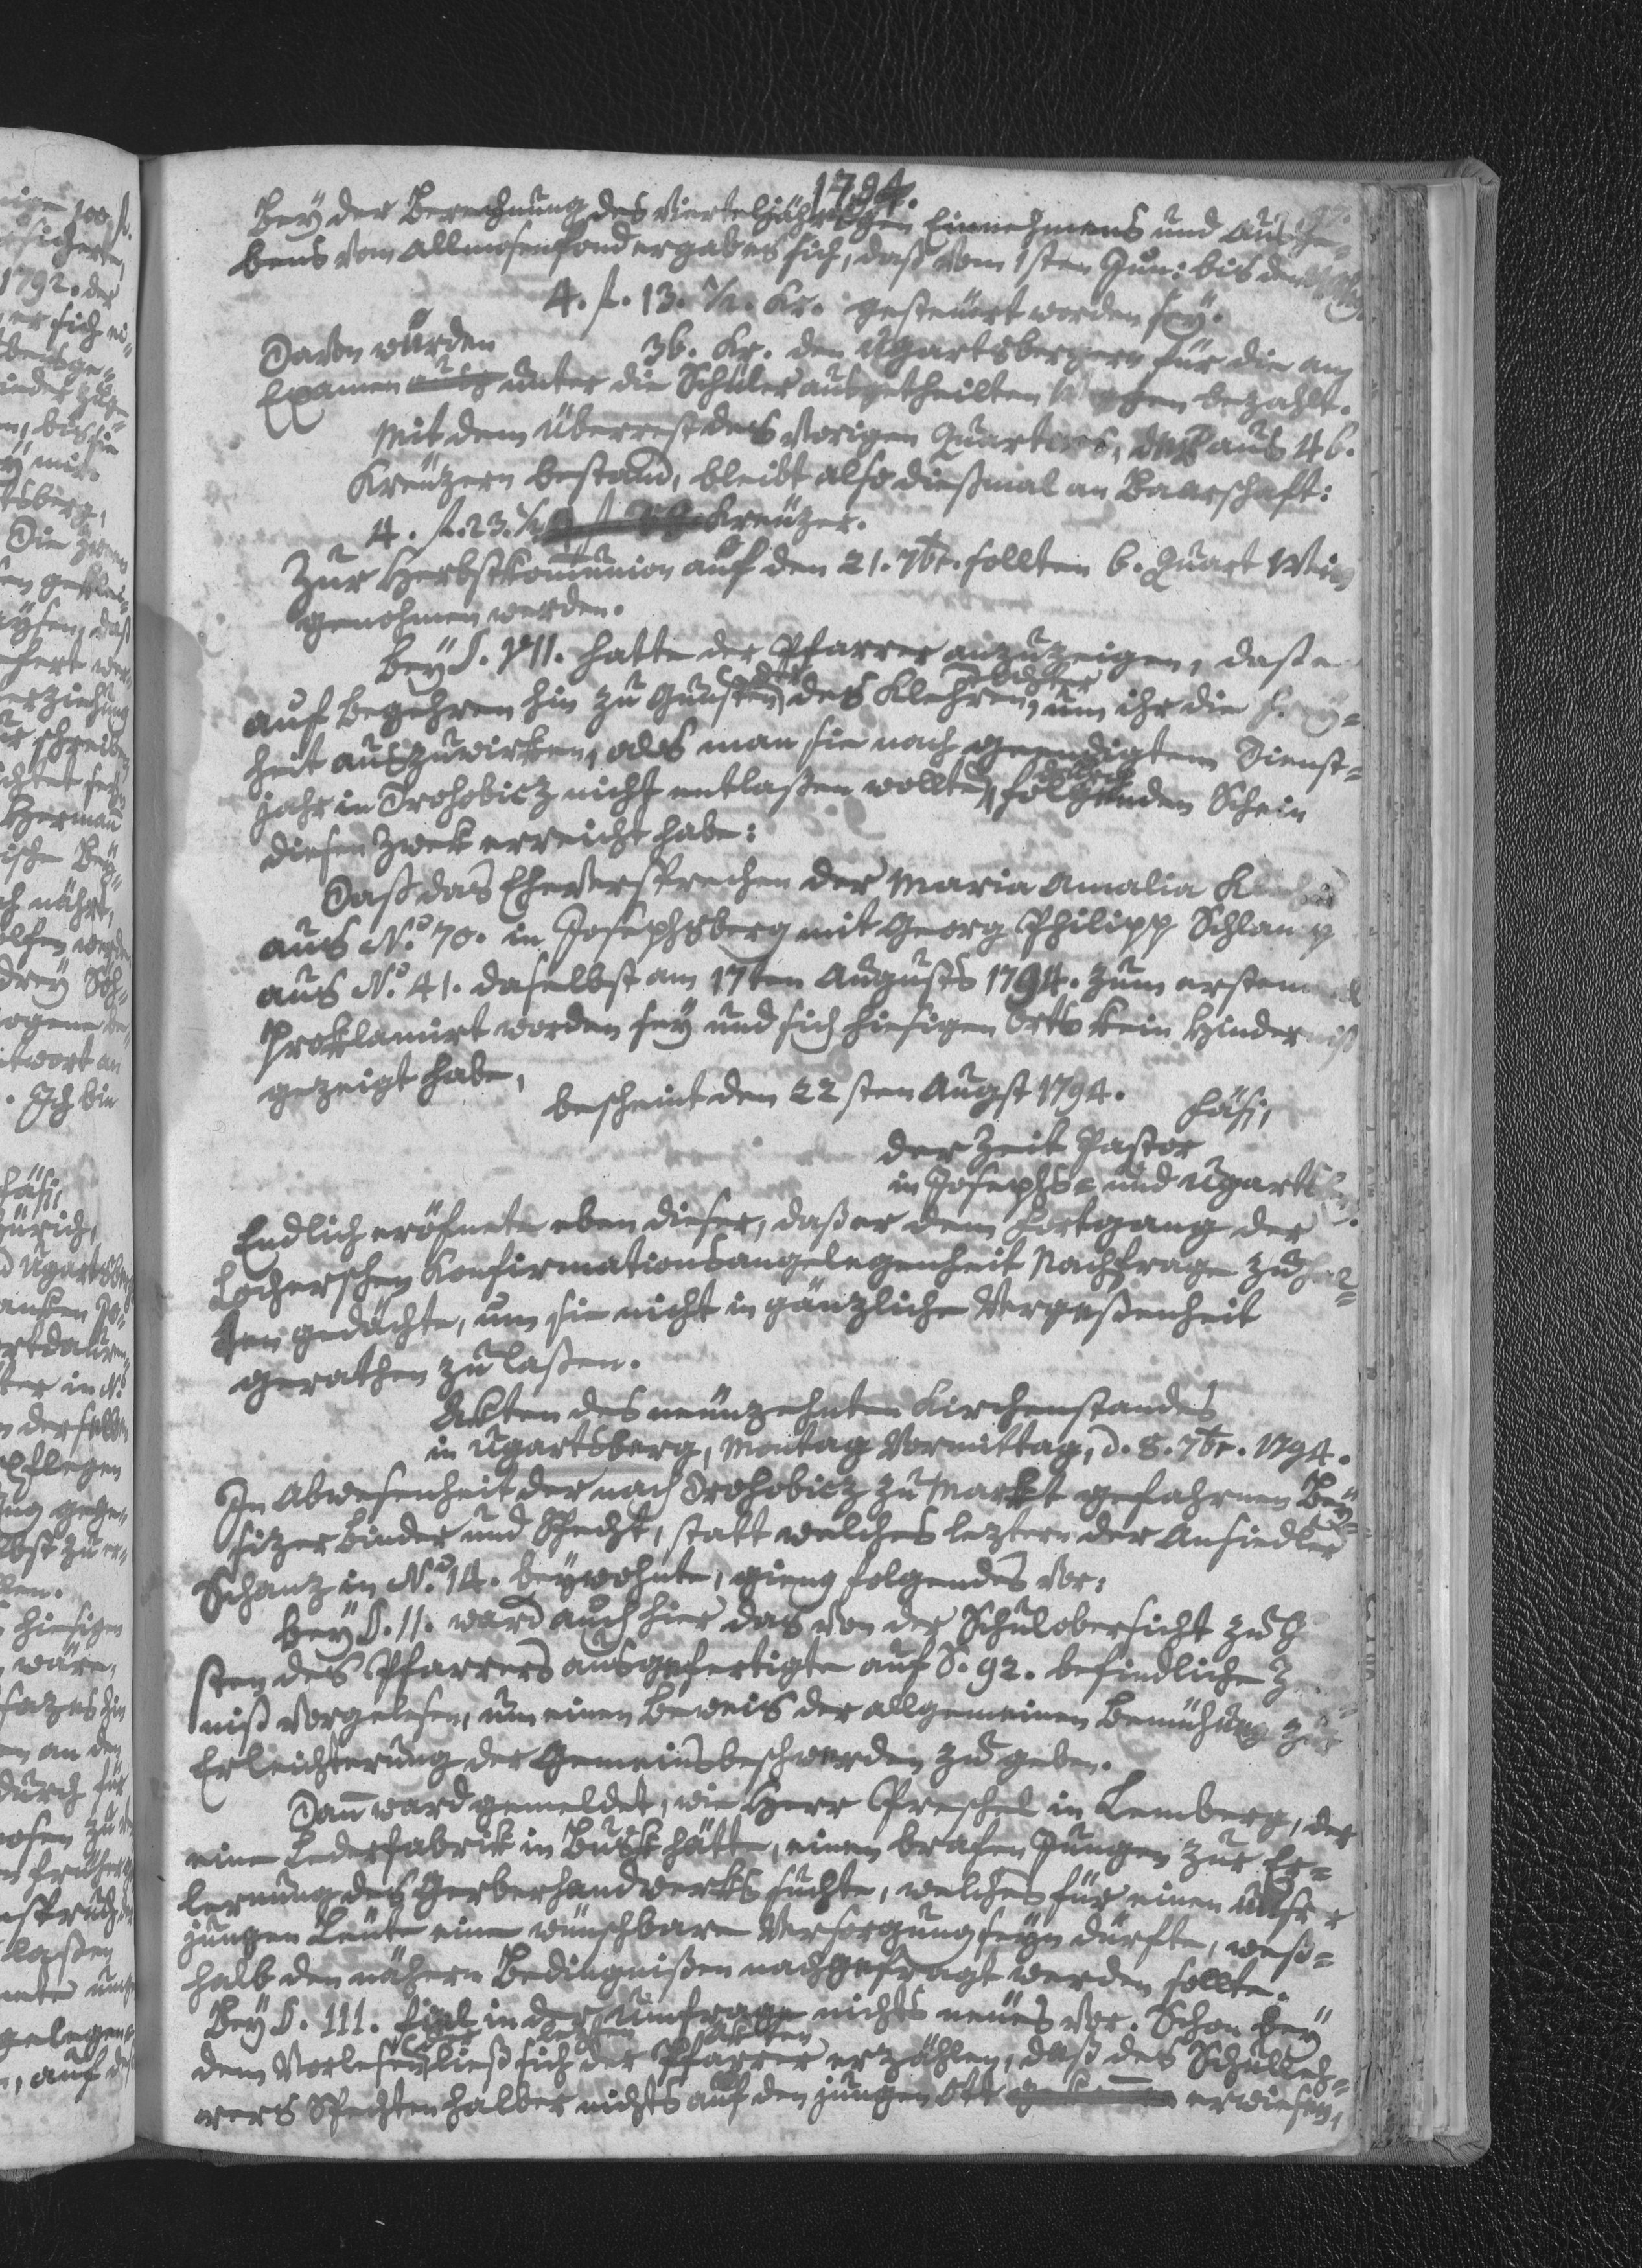 1794.
Bey der Berechnung des vierteljährigen Einnehmens und Ausge-
bens vom Allmosenfond ergab es sich, daß vom 1sten Jun: bis den
4. fl. 13. 1/2. Kr. gesteuert worden sey.
Davon wurden 36. Kr. den Ugartsbergern für die am
Examen unter die Schüler ausgetheilten bezahlt.
Mit dem Überrest des vorigen Quartals, der aus 46.
Kreuzern bestand, bleibt also dießmal an Baarschaft:
4. fl. 23. 1/2 Kreuzer.
Zur Herbstkommunion auf den 21. 7br. sollten 6. Quart Wein
genohmen werden.
Bey §. VII. hatte der Pfarrer anzuzeigen, daß er
auf Begehren hin zu Gunsten der Tochter des Klehren, um ihr die Frey-
heit auszuwirken, als man sie nach geendigtem Dienst-
jahr in Drohobicz nicht entlaßen wollte, durch folgenden Schein
diesen Zwek erreicht habe:
Daß das Eheversprechen der Maria Amalia
aus No. 70. in Josephsberg mit Georg Philipp Schlamp
aus No. 41. daselbst am 17ten Augusts 1794. zum erstenmal
Proklamirt worden sey und sich hiesigen Orts kein Hinderniß
gezeigt habe,
bescheint den 22sten Augst 1794.
Fäsi,
der Zeit Pastor
in Josephs- und Ugartsberg.
Endlich eröfnete eben dieser, daß er dem Fortgang der
Locherschen Konfirmationsangelegenheit Nachfrage zu hal-
ten gedächte, um sie nicht in gänzliche Vergeßenheit
gerathen zu laßen.
Akten des neunzehnten Kirchenstandes
in Ugartsberg, Montag Vormittag, d. 8. 7br. 1794.
In Abwesenheit der nach Drohobicz zu Markt gefahrnen Bey-
sitzer Binder und Specht, statt welches leztern der Ansiedler
Schanz in No. 14. beywohnte, gieng folgendes vor:
Bey §. II. ward auch hier das von der Schulobersicht zu Gun-
sten des Pfarrers ausgefertigte auf S. 92. befindliche Zeug-
niß vorgelesen, um einen Beweis der allgemeinen Bemühung zur
Erleichterung der Gemeinsbeschwerden zu geben.
Dann ward gemeldet, wie Herr Preschel in Lemberg, der
eine Lederfabrik in Busk hätte, einen brafen Jungen zur Er-
lernung des Gerberhandwerks suchte, welches für einen unserer
jungen Leute eine wünschbare Versorgung seyn dürfte, weß-
halb den nähern Bedingnißen nachgefragt werden sollte.
Bey §. III. fiel in der Umfrage nichts neues vor. Schon bey
dem Vorlesen der lezten Akten ließ sich der Pfarrer erzählen, daß des Schulleh-
rers Spechten halber nichts auf den jungen Ott erwiesen,